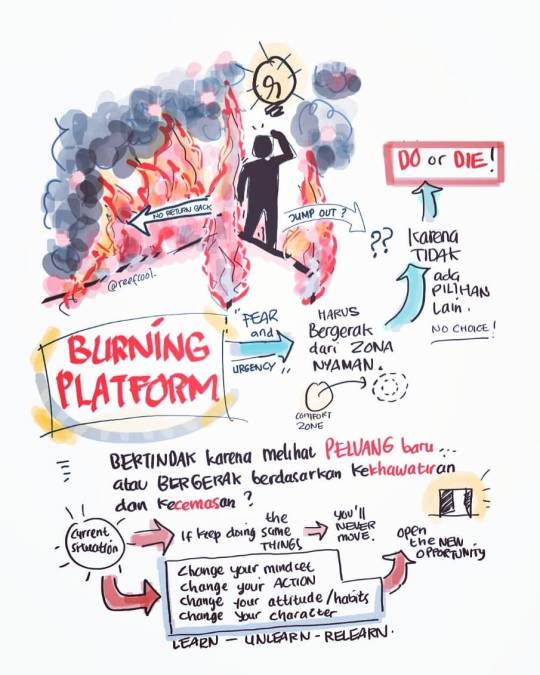 NO RETURN BACK
JUMP OUT?
??
@reefcool.
DO or DIE!
karena
TIDAK
ada
PILIHAN
Lain.
NO CHOICE!
BURNING
PLATFORM
"FEAR
and
URGENCY"
HARUS
Bergerak
dari ZONA
NYAMAN.
COMFORT
ZONE
BERTINDAK karena melihat PELUANG baru ...
atau BERGERAK berdasarkan kekhawatiran
dan kecemasan?
current
situation
If keep doing the
same
THINGS
you'll
NEVER
MOVE.
open
the NEW
OPPORTUNITY
Change your mindset
change your ACTION
change your attitude/habits
change your character
LEARN — UNLEARN - RELEARN.